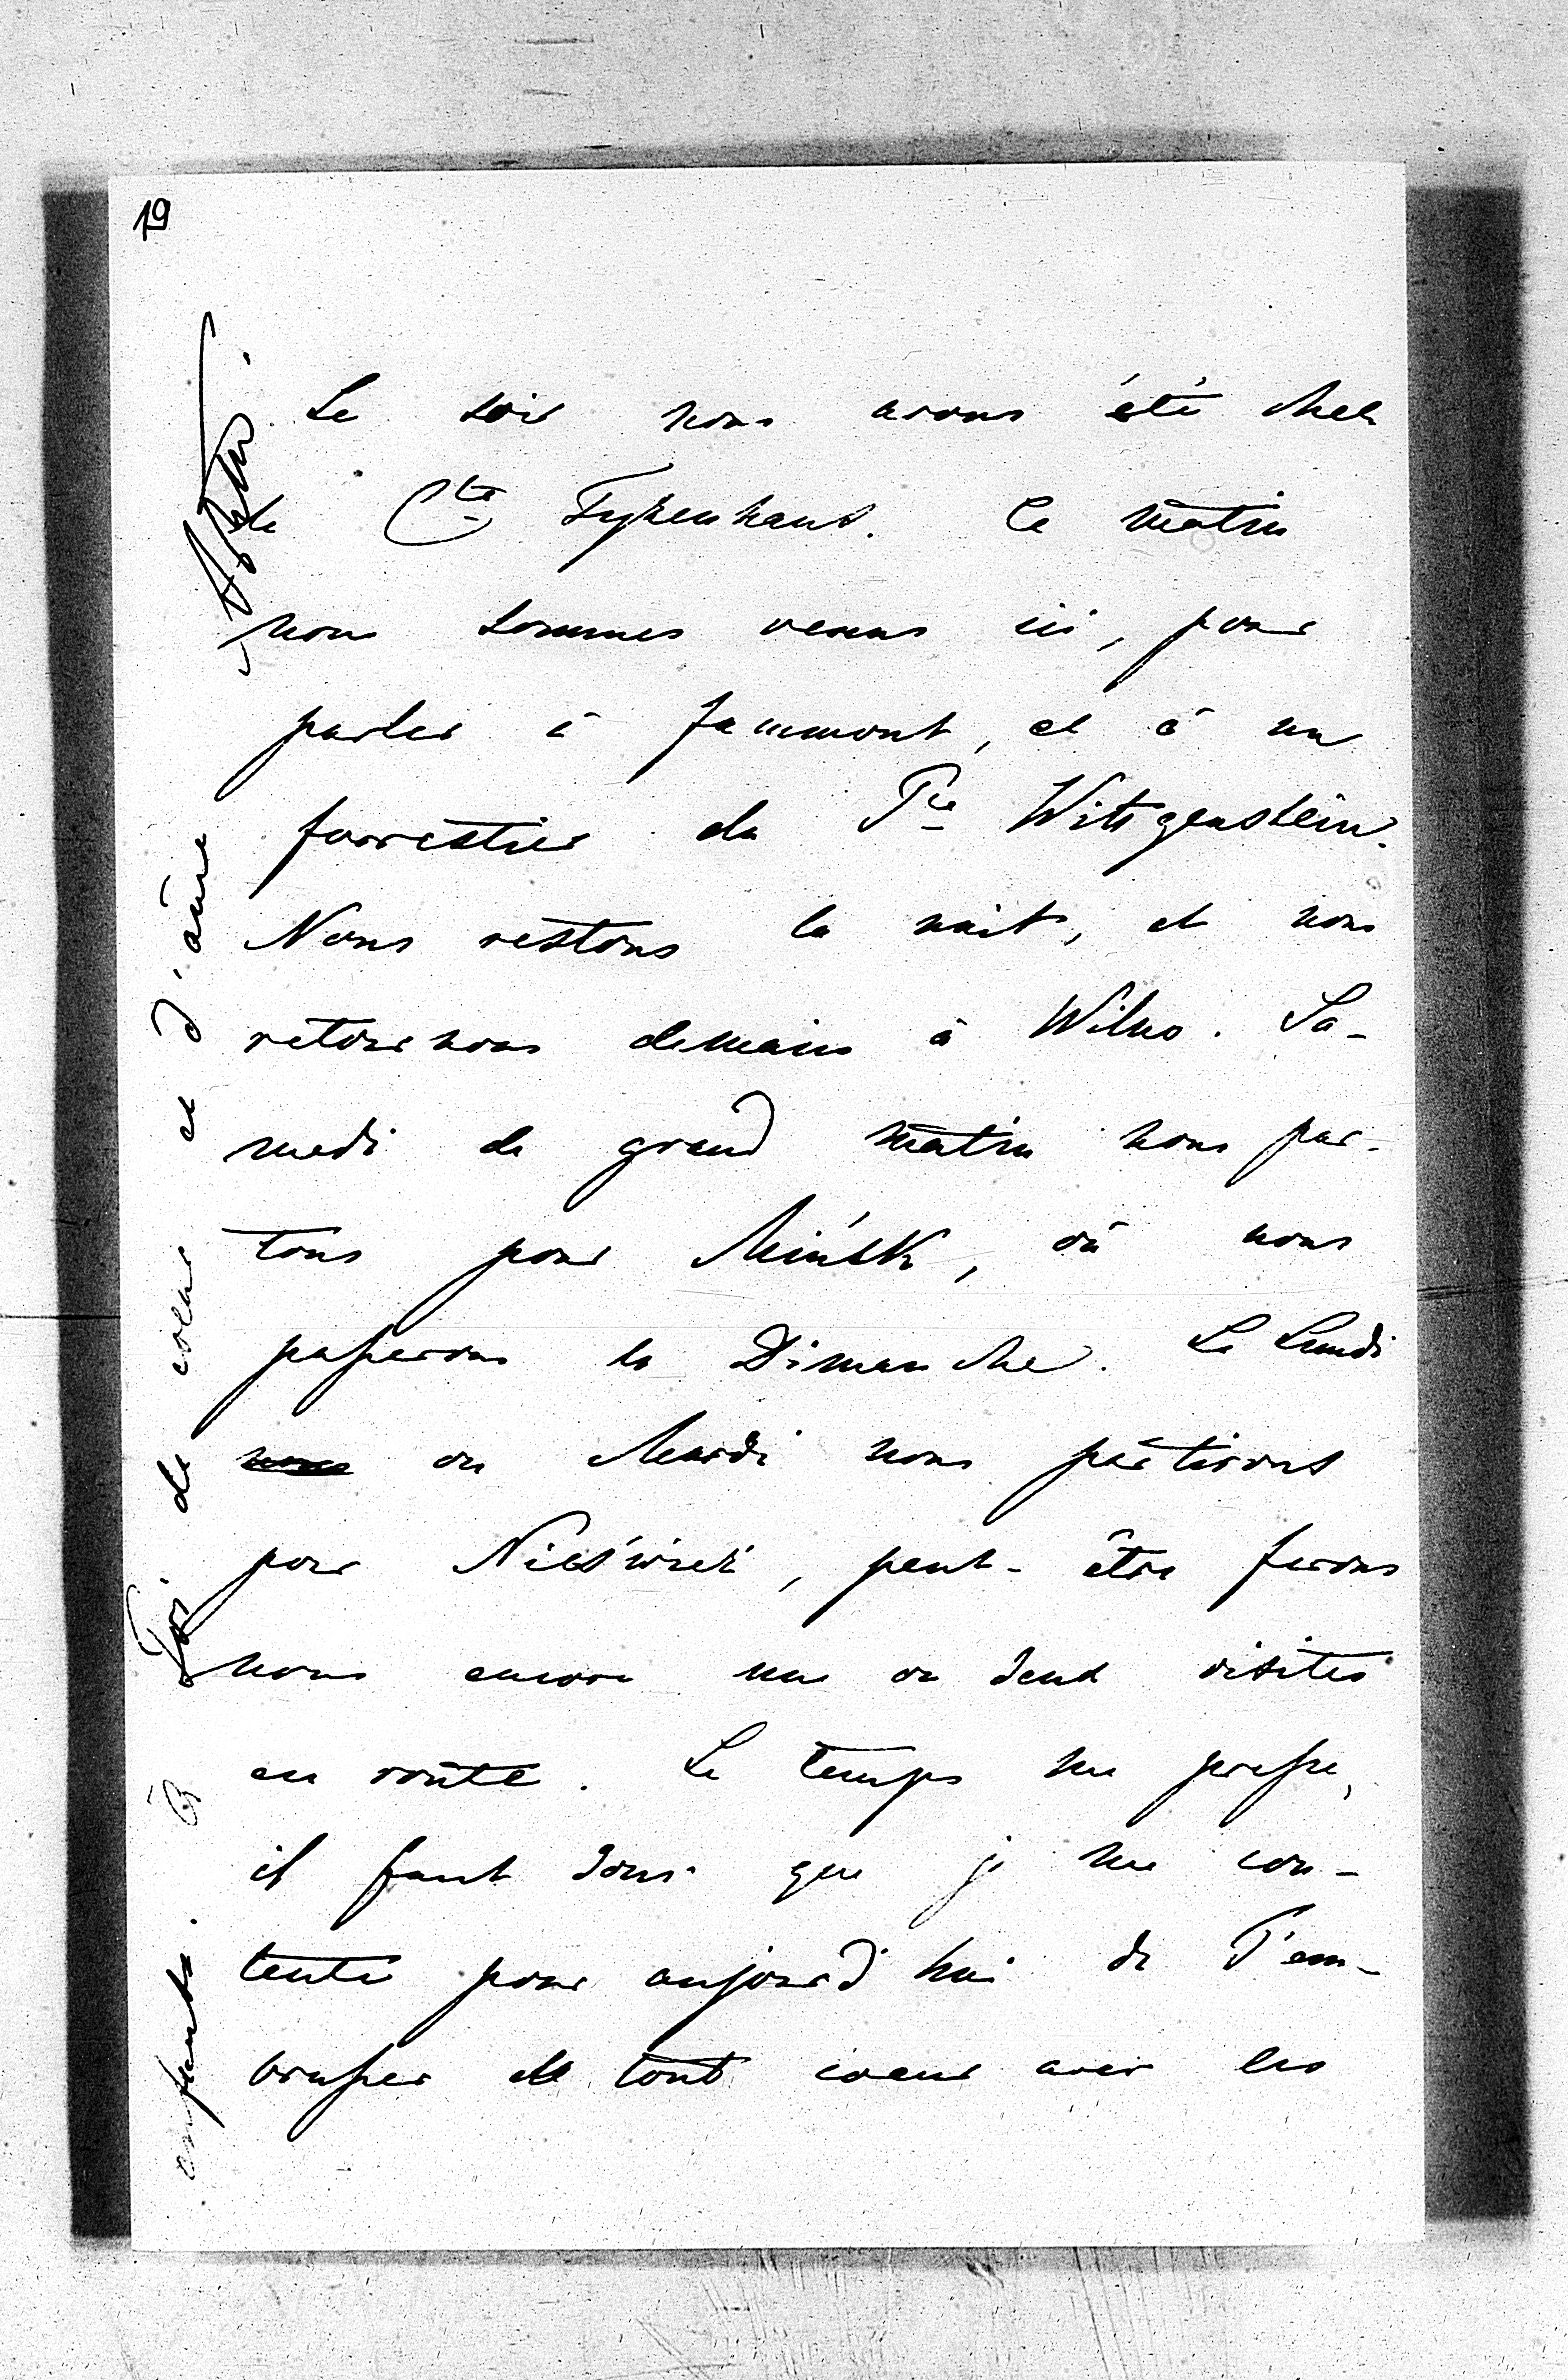 19
Le soir nous avons été chez
le Cte Tyzenhaus. Ce matin
nous sommes venus ici, pour
parler à Jammont, et à un
forrestier du Pce Wittgenstein.
Nous restons la nuit, et nous
retournons demain à Wilno. Sa-
medi de grand matin nous par-
tons pour Mińsk, où nous
passerons le Dimanche. Le Lundi
nous ou Mardi nous partirons
pour Nieświeź, peut-être ferons
nous encore une ou deux visites
en route. Le temps me presse,
il faut donc que je me con-
tente pour aujourd'hui de T'em-
brasser de tout coeur avec les
enfants. à Toi de coeur et d'âme